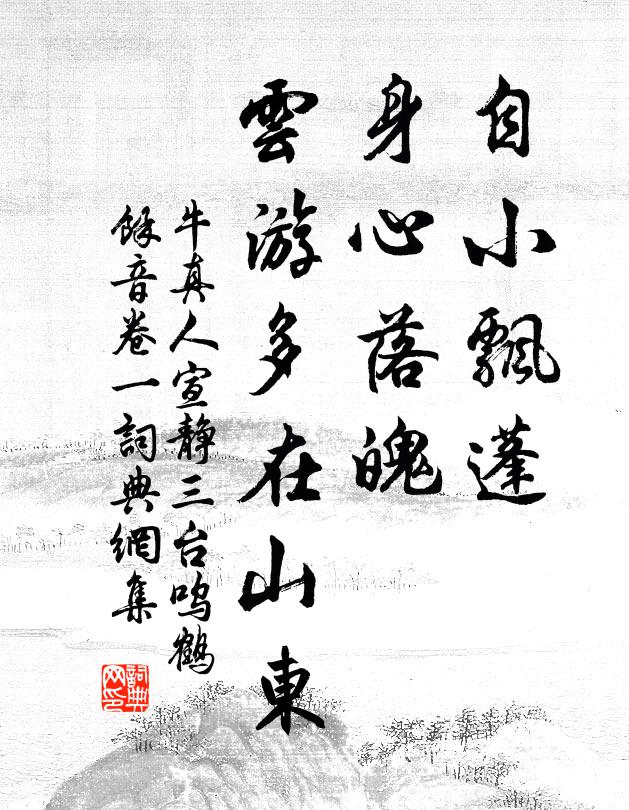 自小飄蓬
身心落魄
雲游多在山東
牛真人宣靜三台鸣鶴
餘音卷一詞典網集
詞典
网印